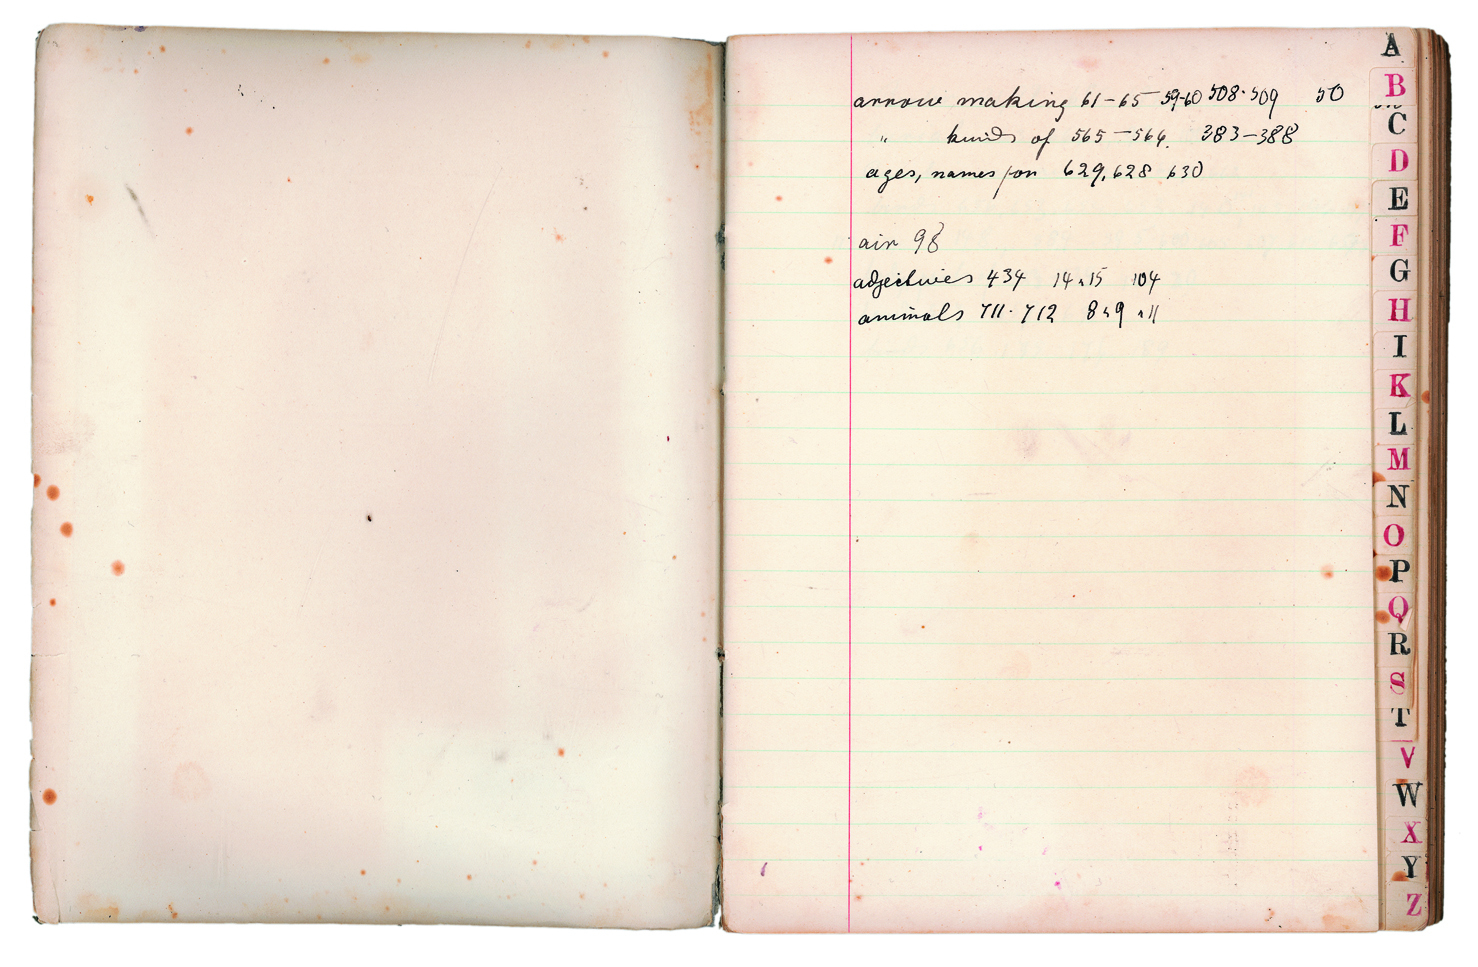 arrow making 61-65 59-60 508-509 50
" kinds of 565-564. 383-388
ages, names for 629, 628 630
air 98
adjectives 434 14, 15 104
animals 711. 712 8, 9, 11
A
B
C
D
E
F
G
H
I
K
L
M
N
O
P
Q
R
S
T
V
W
X
Y
Z